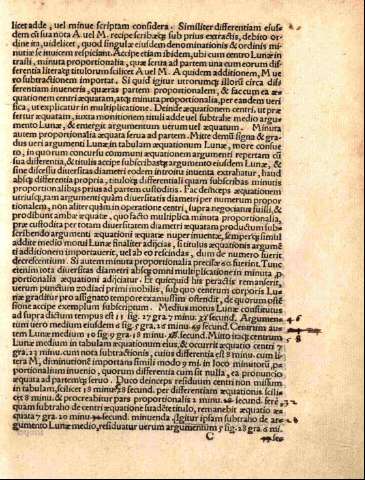 licet adde, uel minue scriptam considera. Similiter differentiam eius
dem cũ sua nota A. uel M. recipe scribẽsq; sub prius extractis, debito or
dine ita, uidelicet, quod singulæ eiusdem denominationis & ordinis mi
nutiæ se inuicem respiciant. Accipe etiam ibidem, ubi cum centro Lunæ in
trasti, minuta proportionalia, quæ serua ad partem una cum eorum dif
ferentia literasq; titulorum scilicet A uel M. A quidem additionem, M ue
ro subtractionem importat. Si quid igitur utrorumq; illorũ circa diffe
rentiam inueneris, quæras partem proportionalem, & fac cum ea æ
quationem centri æquatam, atq; minuta proportionalia, per eandem ueri
fica, ut explicatur in multiplicatione. Deinde æquationem centri, ut præ
fertur æquatam, iuxta monitionem tituli adde uel subtrahe medio argu
mento Lunæ, & emergit argumentum uerum uel æquatum. Minuta
autem proportionalia æquata serua ad partem. Mitte demũ signa & gra
dus ueri argumenti Lunæ in tabulam æquationum Lunæ, more consue
to, in quorum concursu communi æquationem argumenti repertam cũ
sua differentia, & titulis accipe subscribasq; argumento eiusdem Lunæ, &
sine discessu diuersitas diametri eodem introitu inuenta extrahatur, haud
absq; differentia propria, titulosq; differentiali quam subscribas minutis
proportionalibus prius ad partem custoditis. Fac deinceps æquationem
utriusq;, tam argumenti quàm diuersitatis diametri per numerum propor
tionalem, non aliter quàm in operatione centri, supra negociatus fuisti, &
prodibunt ambæ æquatæ, quo facto multiplica minuta proportionalia,
præ custodita per totam diuersitatem diametri æquatam productum sub
scribendo argumenti æquationi æquatæ nuper inuentæ, semperq; simul
addite medio motui Lunæ finaliter adjicias, si titulus æquationis argumẽ
ti additionem importauerit, uel ab eo rescindas, dum de numero fuerit
decrescentium. Si autem minuta proportionalia precise 60 fuerint, Tunc
etenim tota diuersitas diametri absq; omni multiplicatione in minuta p
portionalia æquationi adjiciatur. Et quicquid his peractis remanserit,
uerum punctum zodiaci primi mobilis, sub quo centrum corporis Lu
næ graditur pro assignato tempore examussim ostendit, de quorum oste
sione accipe exemplum subscriptum. Medius motus Lunæ constitutus
ad supra dictum tempus est 11 sig. 27 gra. 7 minu. secund. Argumen 46
tum uero medium eiusdem 6 sig. 5 gra. 26 minu. secund. Centrum au
tem Lunæ medium 10 sig. 9 gra. 16 minu. secund. Mitto itaq; centrum 58
Lunæ medium in tabulam æquationum eius, & occurrit æquatio centri 7
gra. 23 minu. cum nota subtractionis, cuius differentia est 8 minu. cum li
tera M, diminutionẽ importans simili modo 9 mi. in loco minutorũ p,
portionalium inuenio, quorum differentia cum sit nulla, ea pronuncio
æquata ad partemq; seruo. Duco deinceps residuum centri non missum
in tabulam, scilicet 18 minu. secund. per differentiam æquationis scili
cet 8 minu. & procreabitur pars proportionalis 2 minu. secund. ferè 32
quam subtraho de centri æquatione suadẽte titulo, remanebit æquatio æ
quata 7 gra. 20 minu. secund. minuenda. Igitur ipsam subtraho de ar 28
gumento Lunæ medio, residuatur uerum argumentum 5 sig. 28 gra. 6 mi.
C